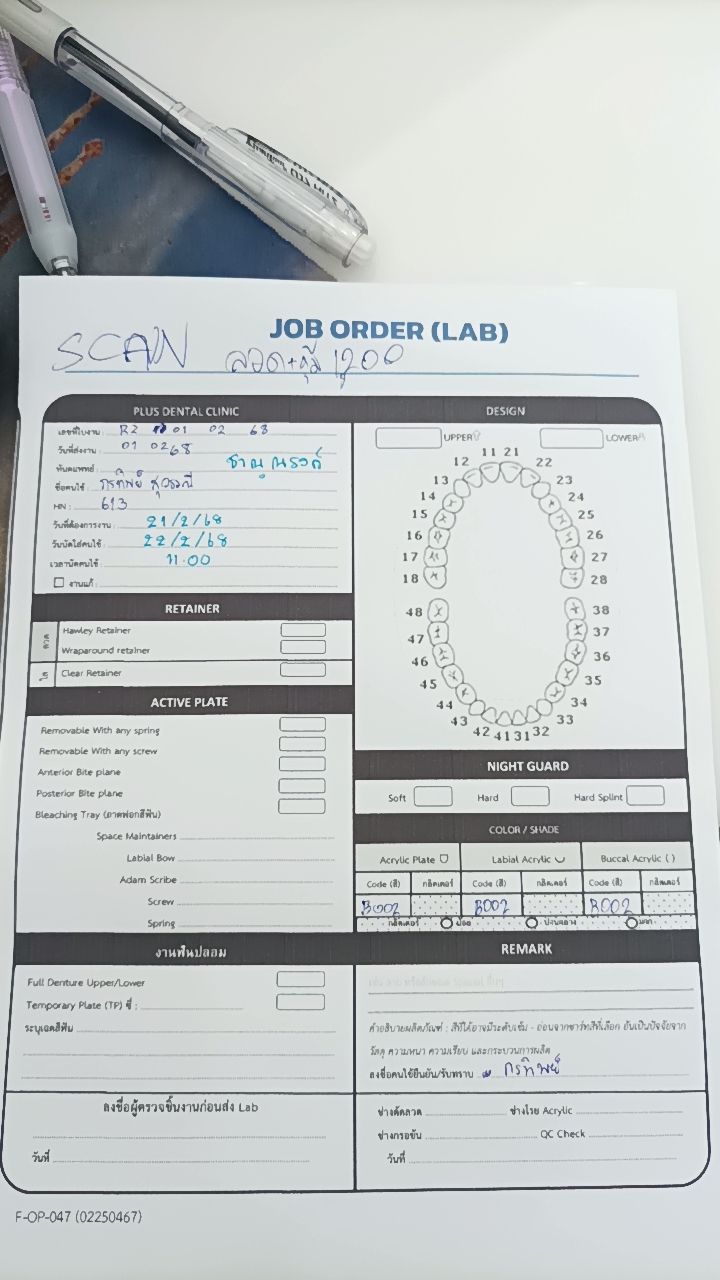 JOB ORDER (LAB)
SCAN ลวด+คุ้ม 1200
PLUS DENTAL CLINIC
เลขที่ใบงาน : R2 01 02 68
วันที่ส่งงาน : 01 0268
ทันตแพทย์ :
ชื่อคนไข้ : กรทิพย์
HN : 613
วันที่ต้องการงาน : 21/2/68
วันนัดใส่คนไข้ : 22/2/68
เวลานัดคนไข้ : 11.00
งานแก้ :
RETAINER
ลวด
Hawley Retainer
Wraparound retainer
ใส
Clear Retainer
ACTIVE PLATE
Removable With any spring
Removable With any screw
Anterior Bite plane
Posterior Bite plane
Bleaching Tray (ถาดฟอกสีฟัน)
Space Maintainers
Labial Bow
Adam Scribe
Screw
Spring
งานฟันปลอม
Full Denture Upper/Lower
Temporary Plate (TP) ซี่ :
ระบุเฉดสีฟัน
ลงชื่อผู้ตรวจชิ้นงานก่อนส่ง Lab
วันที่
DESIGN
UPPER
LOWER
11 21
12 22
13 23
14 24
15 25
16 26
17 27
18 28
48 38
47 37
46 36
45 35
44 34
43 33
42 41 31 32
NIGHT GUARD
Soft Hard Hard Splint
COLOR / SHADE
Acrylic Plate Labial Acrylic Buccal Acrylic ( )
Code (สี) กลิตเตอร์ Code (สี) กลิตเตอร์ Code (สี) กลิตเตอร์
B002 B002 B002
กลิตเตอร์ น้อย ปานกลาง มาก
REMARK
คำอธิบายผลิตภัณฑ์ : สีที่ได้อาจมีระดับเข้ม - อ่อนจากชาร์ทสีที่เลือก อันเป็นปัจจัยจาก
วัสดุ ความหนา ความเรียบ และกระบวนการผลิต
ลงชื่อคนไข้ยืนยัน/รับทราบ กรทิพย์
ช่างดัดลวด ช่างโรย Acrylic
ช่างกรอขัด QC Check
วันที่
F-OP-047 (02250467)